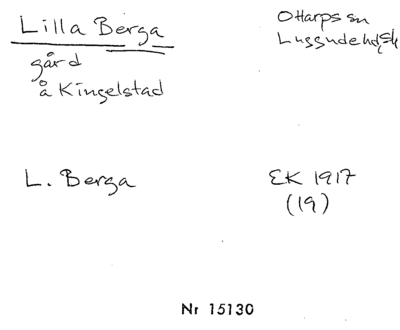 Lilla Berga
Ottarps sn
Luggude hd, Sk
gård
å Kingelstad
L. Berga
EK 1917
(19)
Nr 15130